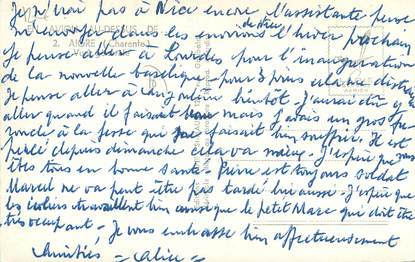 Je n'irai pas à Nice encore l'assistante pense
m'envoyer dans les environs de Nice l'hiver prochain
je pense aller à Lourdes pour l'inauguration
de la nouvelle basilique - pour 3 jours cela me distrait
Je pense aller à Angoulême bientôt J'aurai dû y
aller quand il faisait bon mais j'avais un gros fu
roncle à la fesse qui me faisait bien souffrir. Il est
percé depuis dimanche cela va mieux - J'espère que vous
êtes tous en bonne santé - Pierre est toujours soldat
Marcel ne va peut être pas tarder lui aussi - J'espère que
les écoliers travaillent bien ainsi que le petit Marc qui doit être
très occupant - Je vous embrasse bien affectueusement
Amitiés - Alice -
2. AIGRE (Charente)